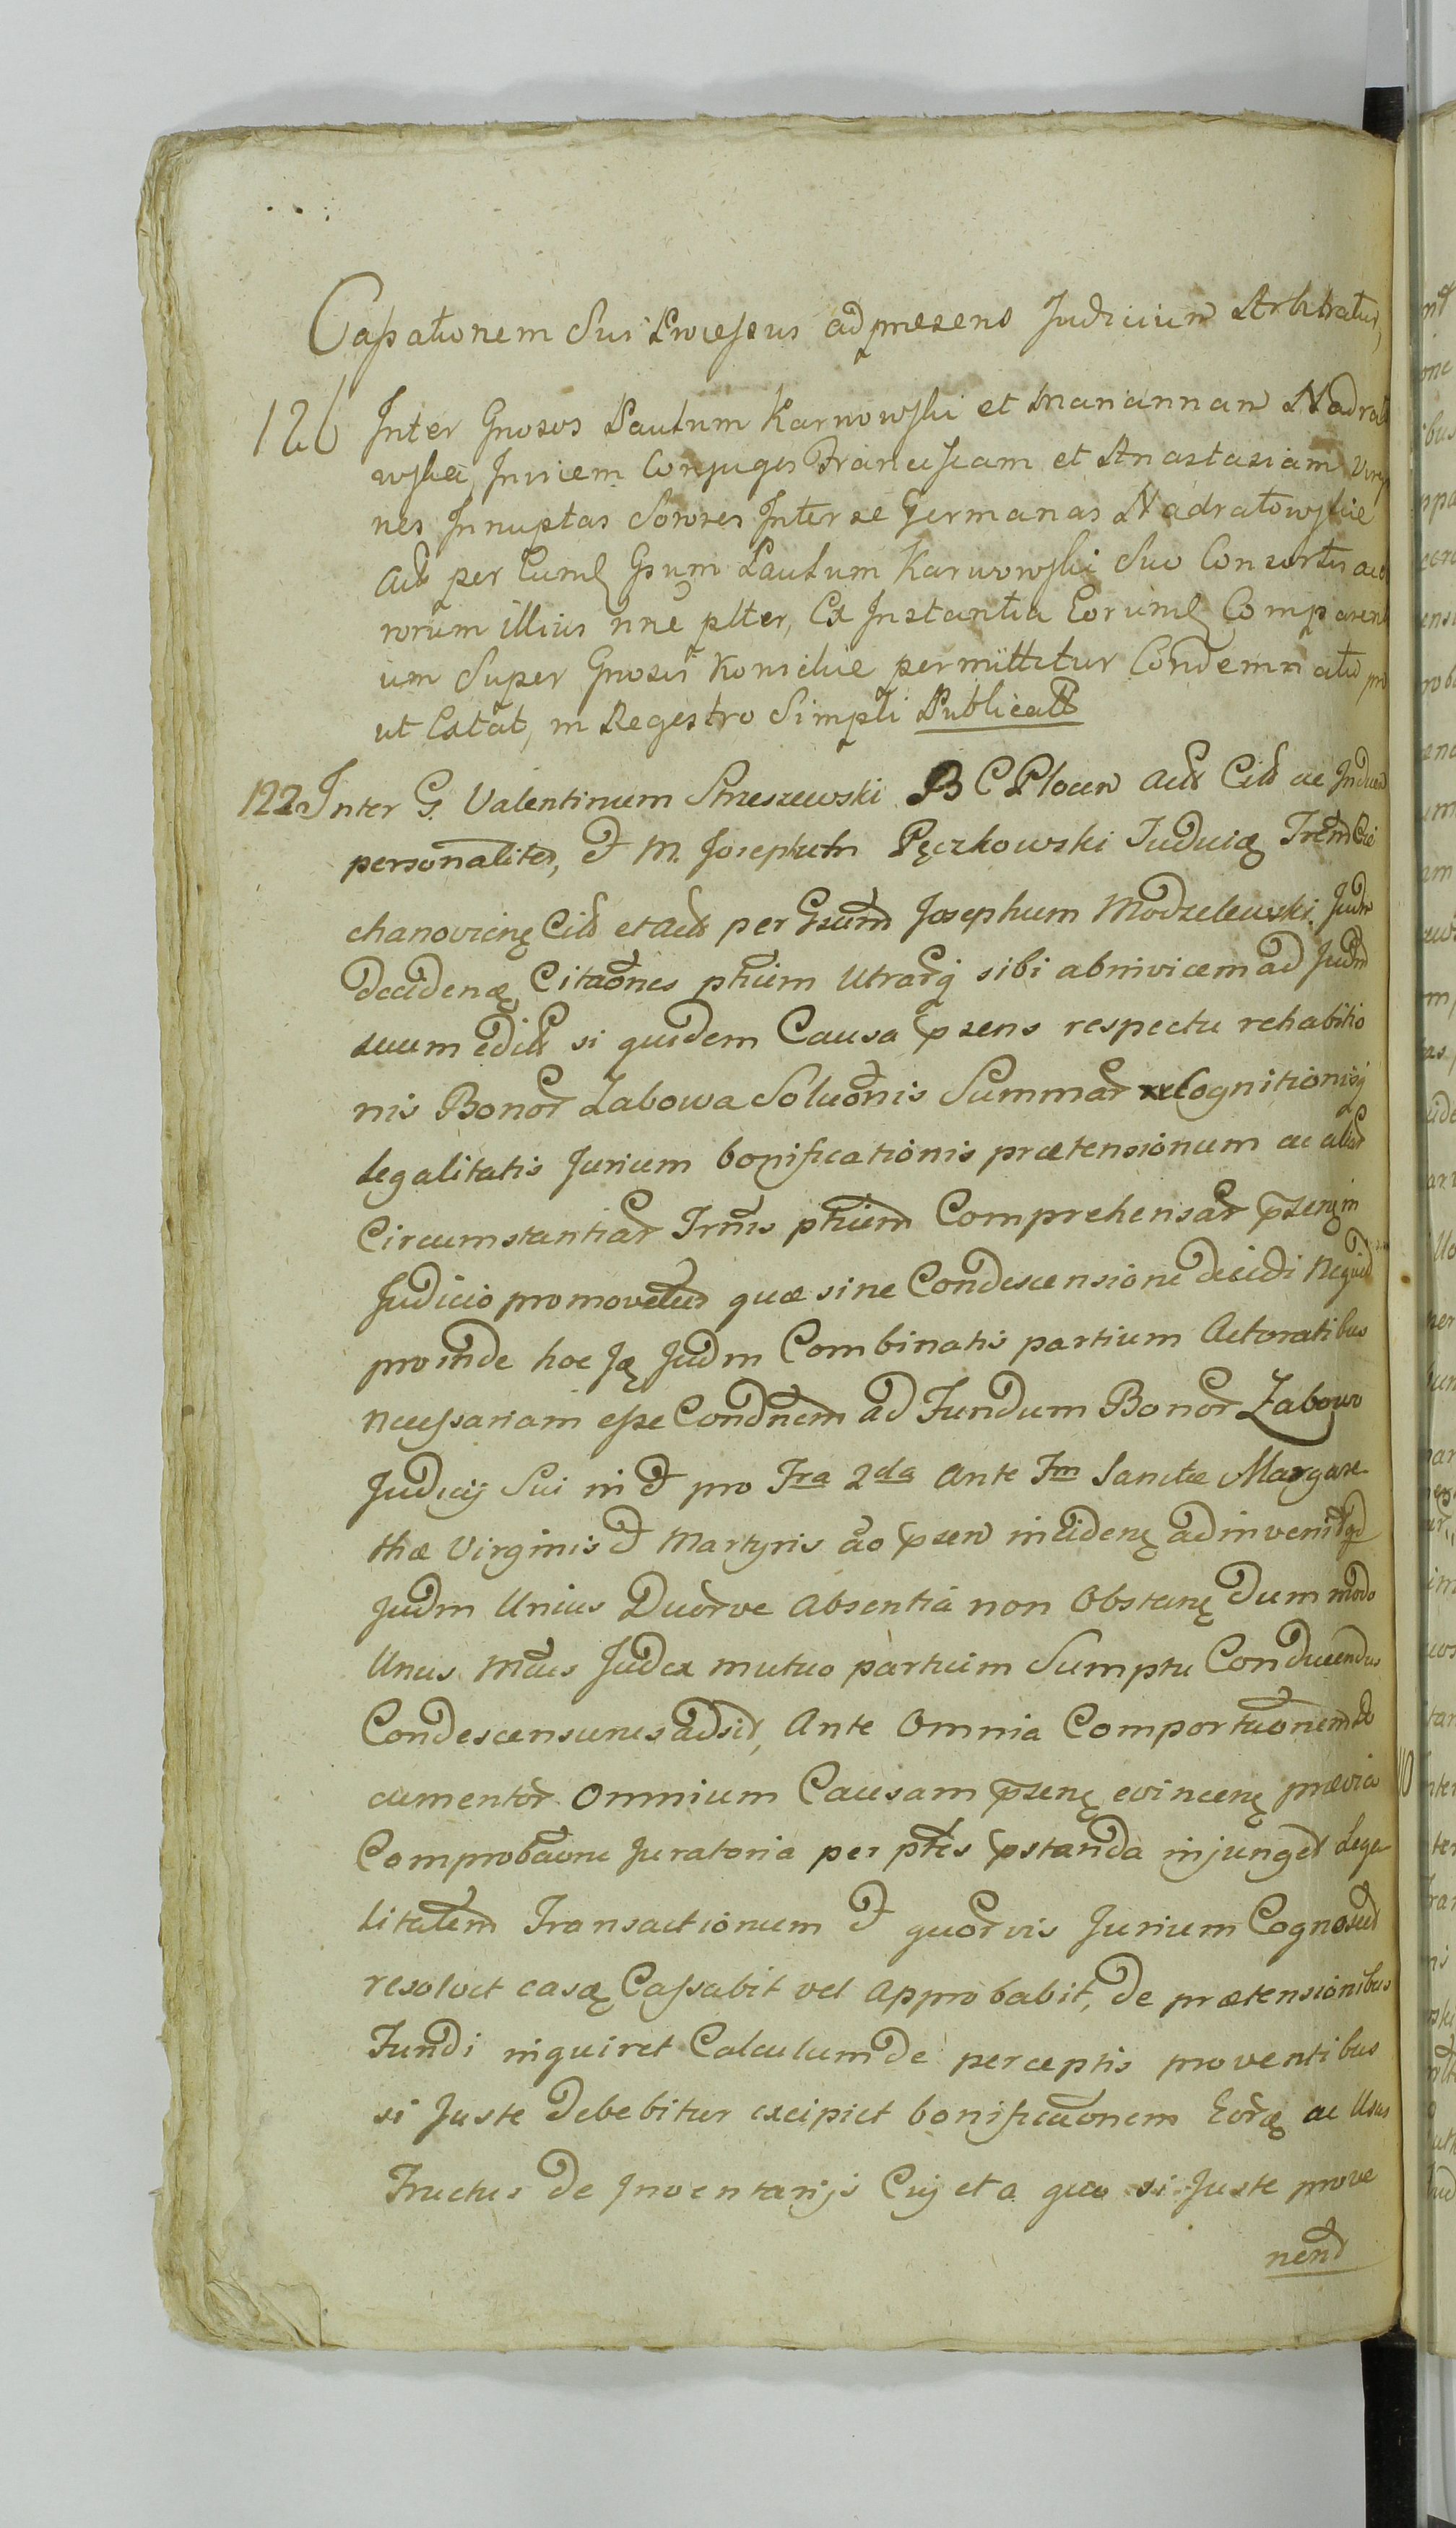 Cassationem Sui Processus ad praesens Judicium Arbitratur,
126 Inter Gnosos Paulum Karwowski et Mariannam Nadrato
wskie Invicem Conjuges Franciscam et Anastasiam Virgi
nes Innuptas Sorores Inter se Germanas Nadratowskie
per Gsum Paulum Karwowski Suo Consortis ac
rorum illius nne plter, Ex Instantia Comparent
ium Super Gnosis permittitur Condemnatio pro
ut Extat, in Regestro Simpli Publicatt
122 Inter G. Valentinum Strzeszewski B C Plocen Act Cit ac Inducen
personaliter, et M. Josephum Pęczkowski Judicię Trem Cie
chanoviens Cit et Act per Gsum Josephum Modzelewski Judm
decidens Citaones ptium Utrarq sibi abinvicem ad Judm
suum edict si quidem Causa psens respectu rehabitio
nis Bonor Zabowa Soluonis Summar Cognitionisq
legalitatis Jurium bonificationis praetensionum ac aliar
Circumstantiar Trmis ptium Comprehensar psenq in
Judicio promovetur quae sine Condescensione decidi nequit
proinde hoc Jq Judm Combinatis partium Actoratibus
necessariam esse Condnem ad Fundum Bonor Zabowo
Judicij Sui in et pro Fra 2da Ante Fm Sanctae Margare
thae Virginis et Martyris ao psen incidens adinvenit qd
Judm Unius Duorve Absentia non Obstante Dummodo
Unus Judex mutuo partium Sumptu Conducendus
Condescensures adsit, Ante Omnia Comportaonem Do
cumentor Omnium Causam psens evincens praevia
Comprobaone Juratoria per ptes pstanda injunget Lega
litatem Transactionum et quorvis Jurium Cognoscet
resolvet casq Cassabit vel Approbabit, De praetensionibus
Fundi inquiret Calculum de perceptis proventibus
si Juste Debebitur excipiet bonificaonem Eorq ac Usus
Fructus De Inventarijs Cuj et a quo si Juste prove
nend